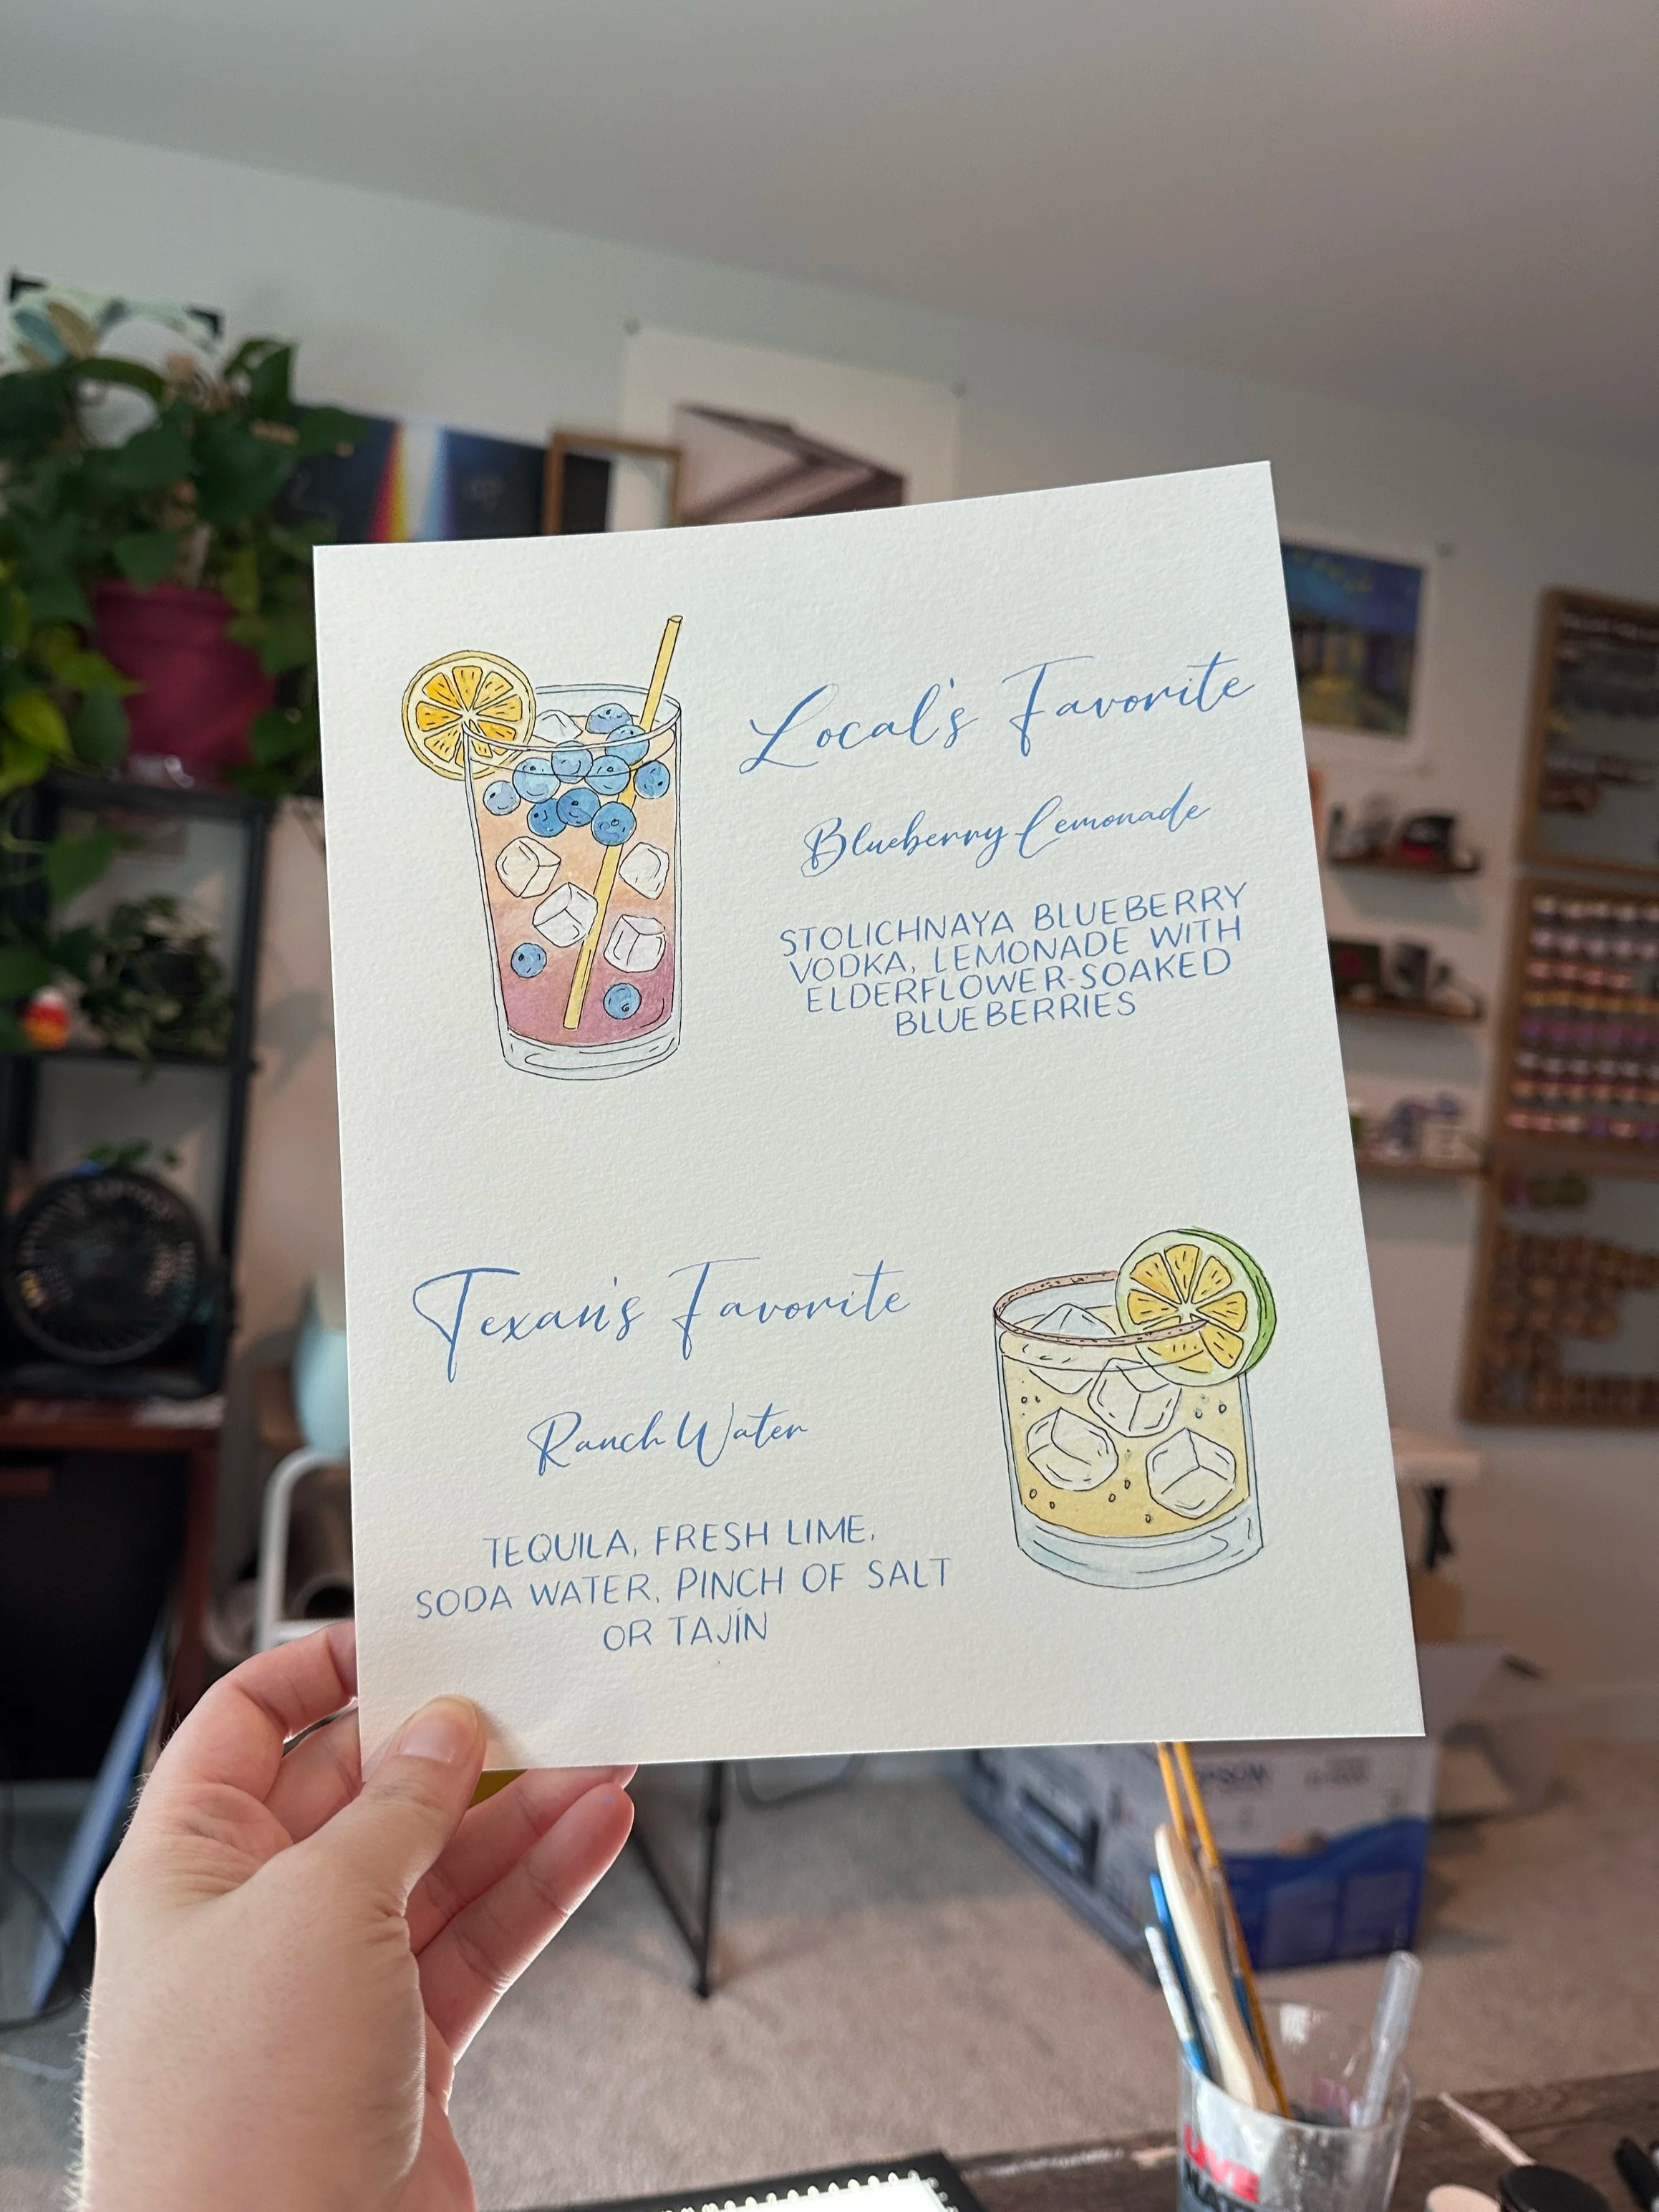 Local's Favorite
Blueberry Lemonade
STOLICHNAYA BLUEBERRY
VODKA, LEMONADE WITH
ELDERFLOWER-SOAKED
BLUEBERRIES
Texan's Favorite
Ranch Water
TEQUILA, FRESH LIME,
SODA WATER, PINCH OF SALT
OR TAJÍN
EPSON
LIVE